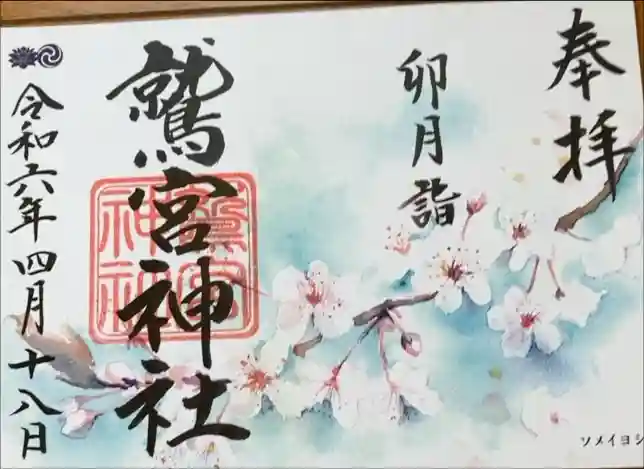 奉拝
卯月詣
鷲宮神社
鷲宮
神社
令和六年四月十八日
ソメイヨシ